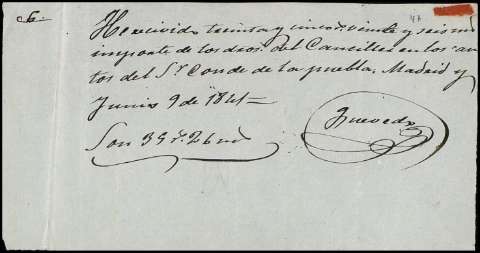 He recivido treinta y cinco r.s veinte y seis mrs
importe de los dros. del Canciller en los au-
tos del S.r Conde de la puebla. Madrid y
Junio 9 de 1841=
Quevedo
Son 35 r.s 26 ms